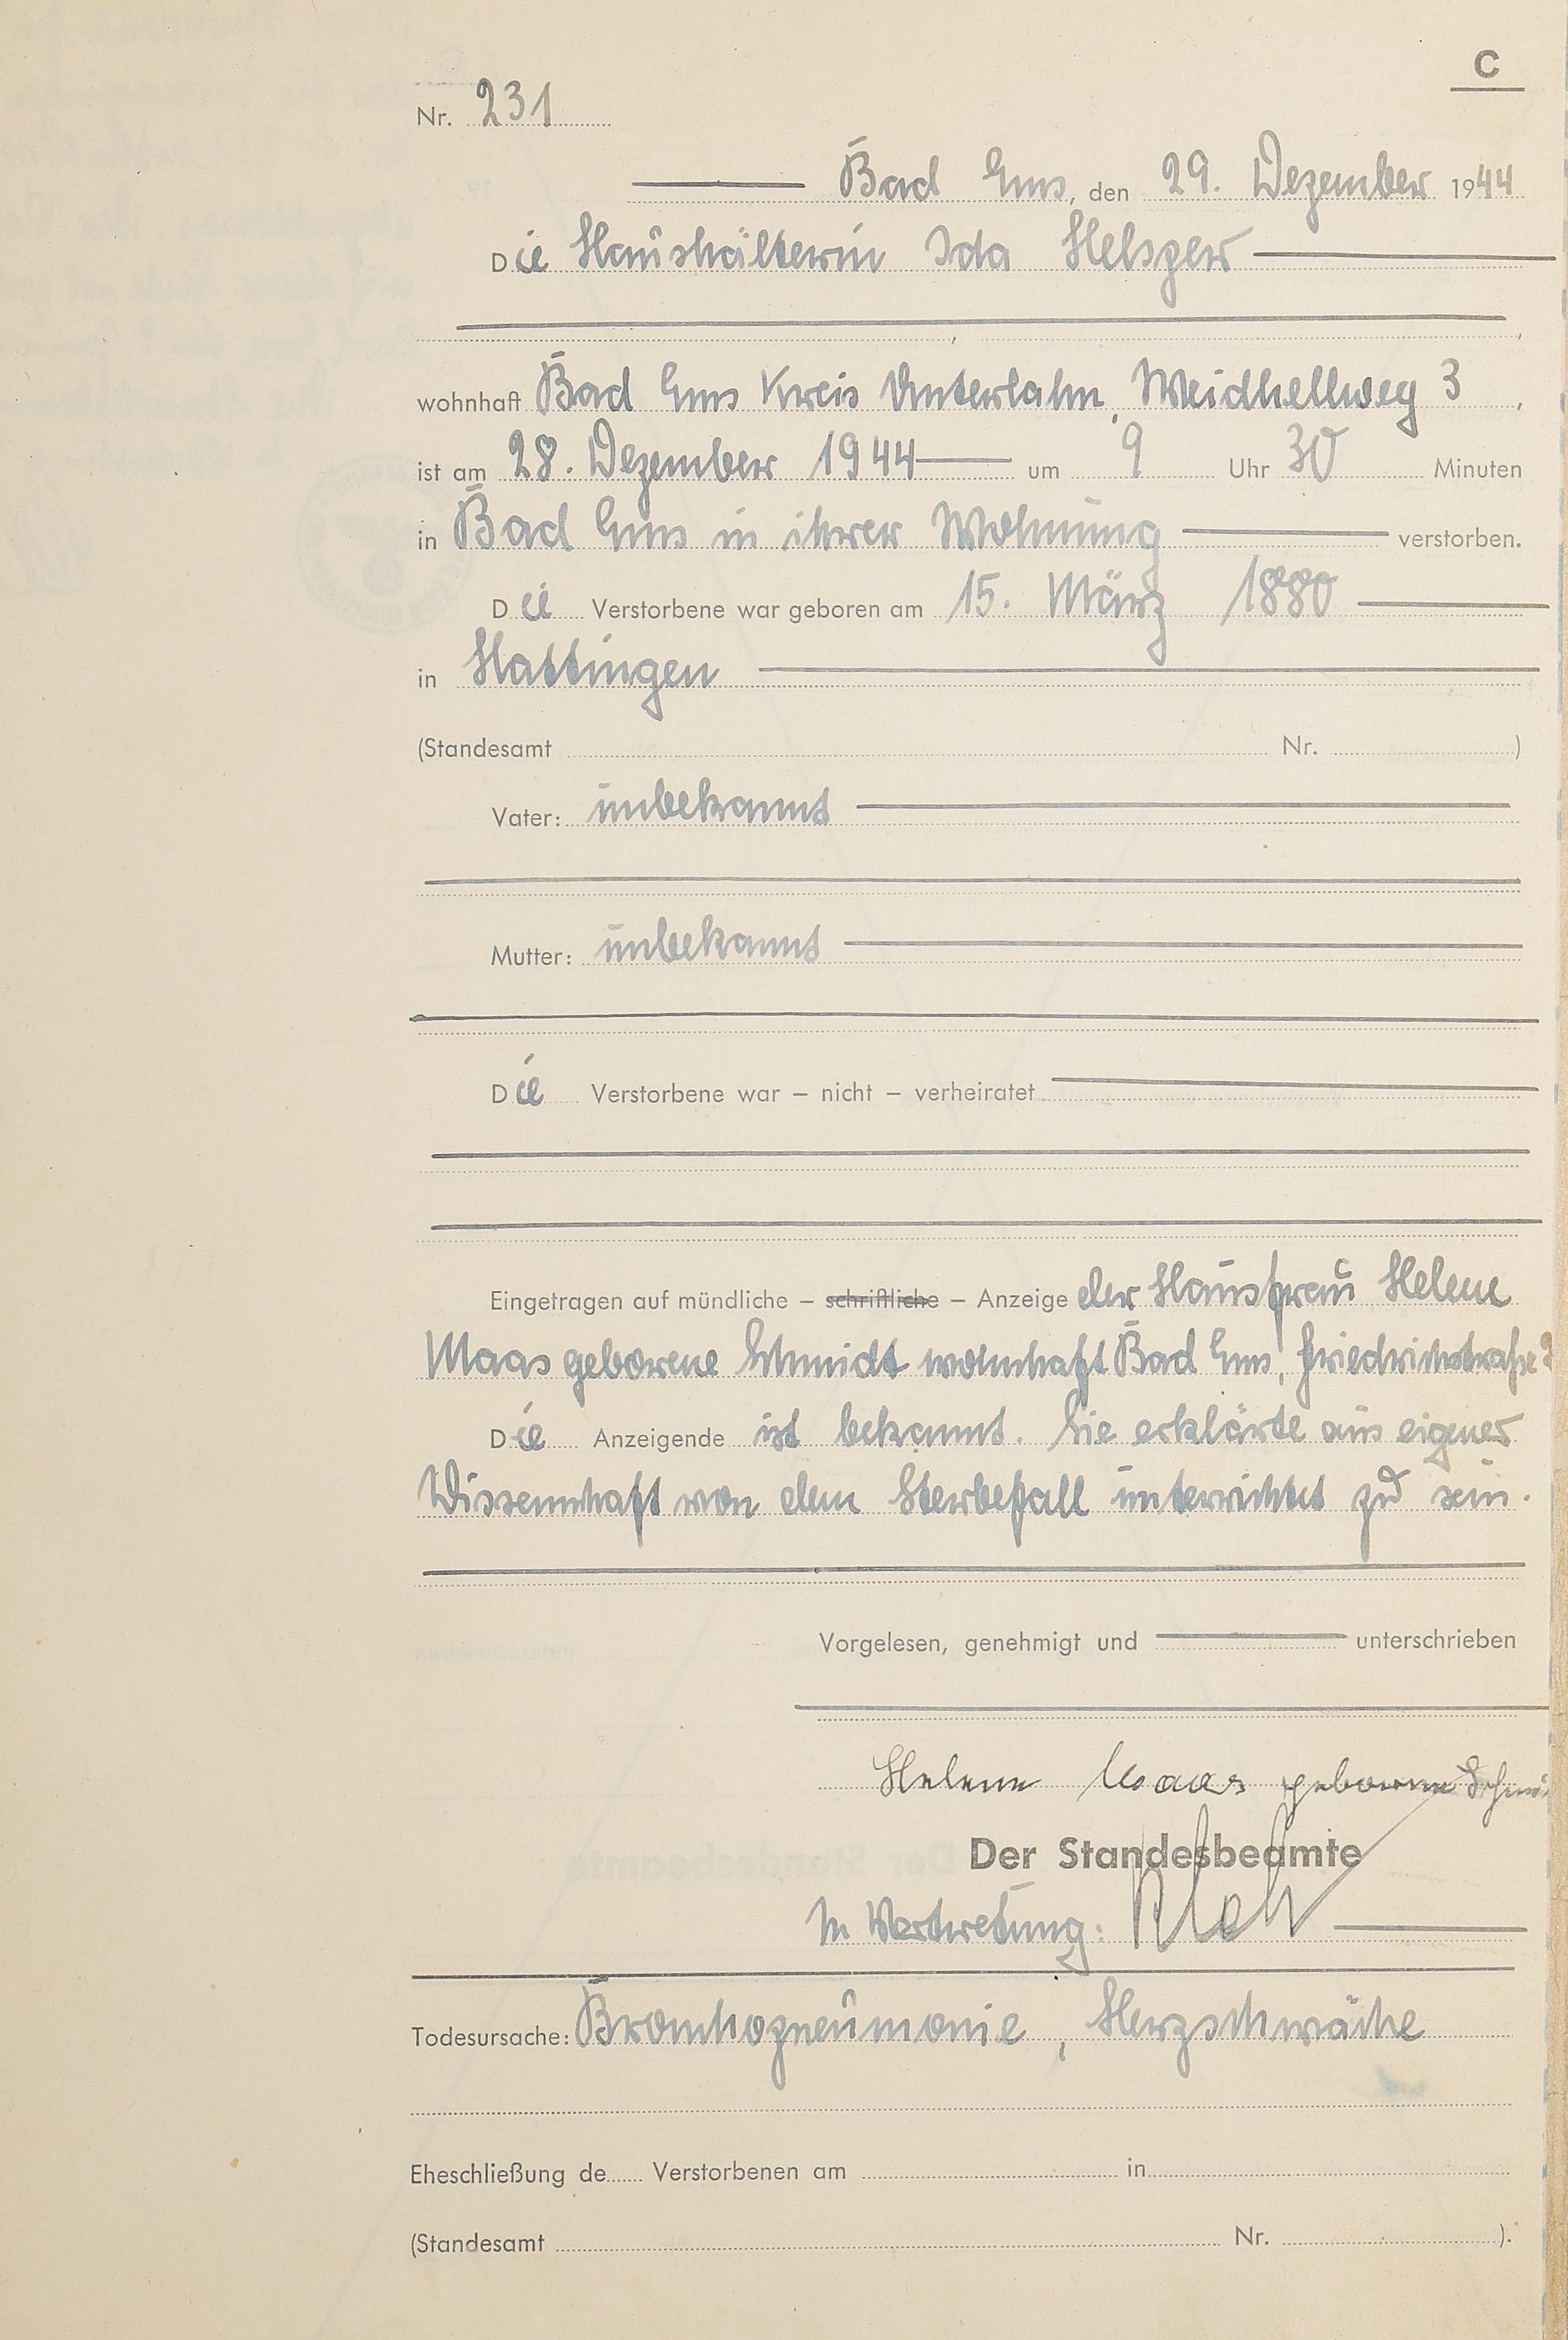 C
Nr. 231
Bad Ems, den 29. Dezember 1944
Die Haushälterin Ida Helsper
wohnhaft Bad Ems Kreis Unterlahn, Weidhellweg 3,
ist am 28. Dezember 1944 um 9 Uhr 30 Minuten
in Bad Ems in ihrer Wohnung verstorben.
Die Verstorbene war geboren am 15. März 1880
in Hattingen
(Standesamt Nr. )
Vater: unbekannt
Mutter: unbekannt
Die Verstorbene war – nicht – verheiratet
Eingetragen auf mündliche – schriftliche – Anzeige der Hausfrau Helene
Maas geborene Schmidt wohnhaft Bad Ems, Friedrichstraße
Die Anzeigende ist bekannt. Sie erklärte aus eigener
Wissenschaft von dem Sterbefall unterrichtet zu sein.
Vorgelesen, genehmigt und unterschrieben
Helene Maas geborene
Der Standesbeamte
In Vertretung:
Todesursache: Bronchopneumonie, Herzschwäche
Eheschließung de Verstorbenen am in
(Standesamt Nr. ).